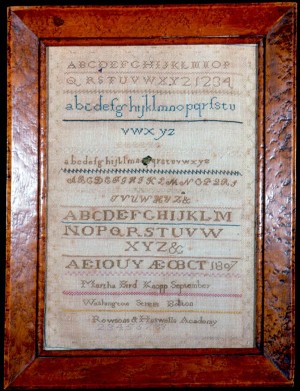 ABCDEFGHIJKLMNOP
QRSTUVWXYZ1234
abcdefghijklmnopqrſstu
vwxyz
abcdefghijklmnopqrstuvwxyz
ABCDEFGHIJKLMNOPQRS
TUVWXYZ&
ABCDEFGHIJKLM
NOPQRSTUVW
XYZ&
AEIOUY ÆŒ&CT 1807
Martha Bird Knapp September
Washington Edition
Rowsons & Academy